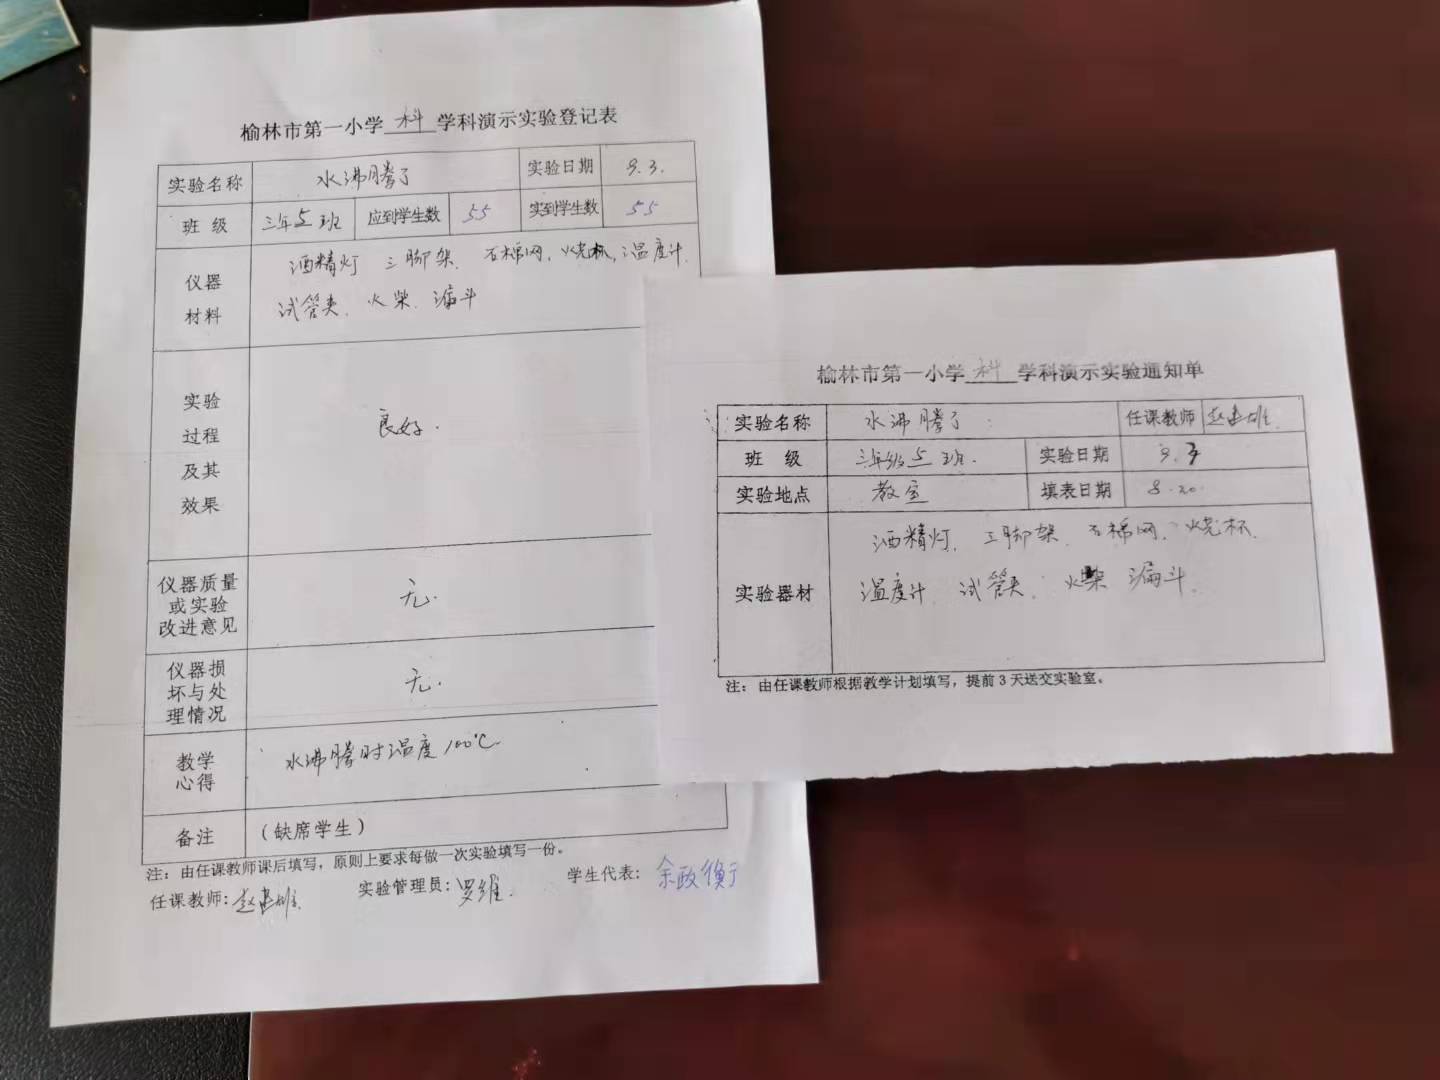 榆林市第一小学 科 学科演示实验登记表
实验名称 水沸腾了 实验日期 9.3.
班 级 三年5班 应到学生数 55 实到学生数 55
仪器
材料
酒精灯 三脚架、石棉网、烧杯、温度计
试管夹、火柴、漏斗
实验
过程
及其
效果
良好.
仪器质量
或实验
改进意见
无.
仪器损
坏与处
理情况
无.
教学
心得
水沸腾时温度100℃
备注 (缺席学生)
注：由任课教师课后填写，原则上要求每做一次实验填写一份。
任课教师: 赵建雄 实验管理员: 罗维. 学生代表: 余政衡
榆林市第一小学 科 学科演示实验通知单
实验名称 水沸腾了 任课教师 赵建雄
班 级 三年级5班. 实验日期 9.3
实验地点 教室 填表日期 8.20.
实验器材
酒精灯、三脚架、石棉网、烧杯、
温度计、试管夹、火柴 漏斗.
注：由任课教师根据教学计划填写，提前3天送交实验室。